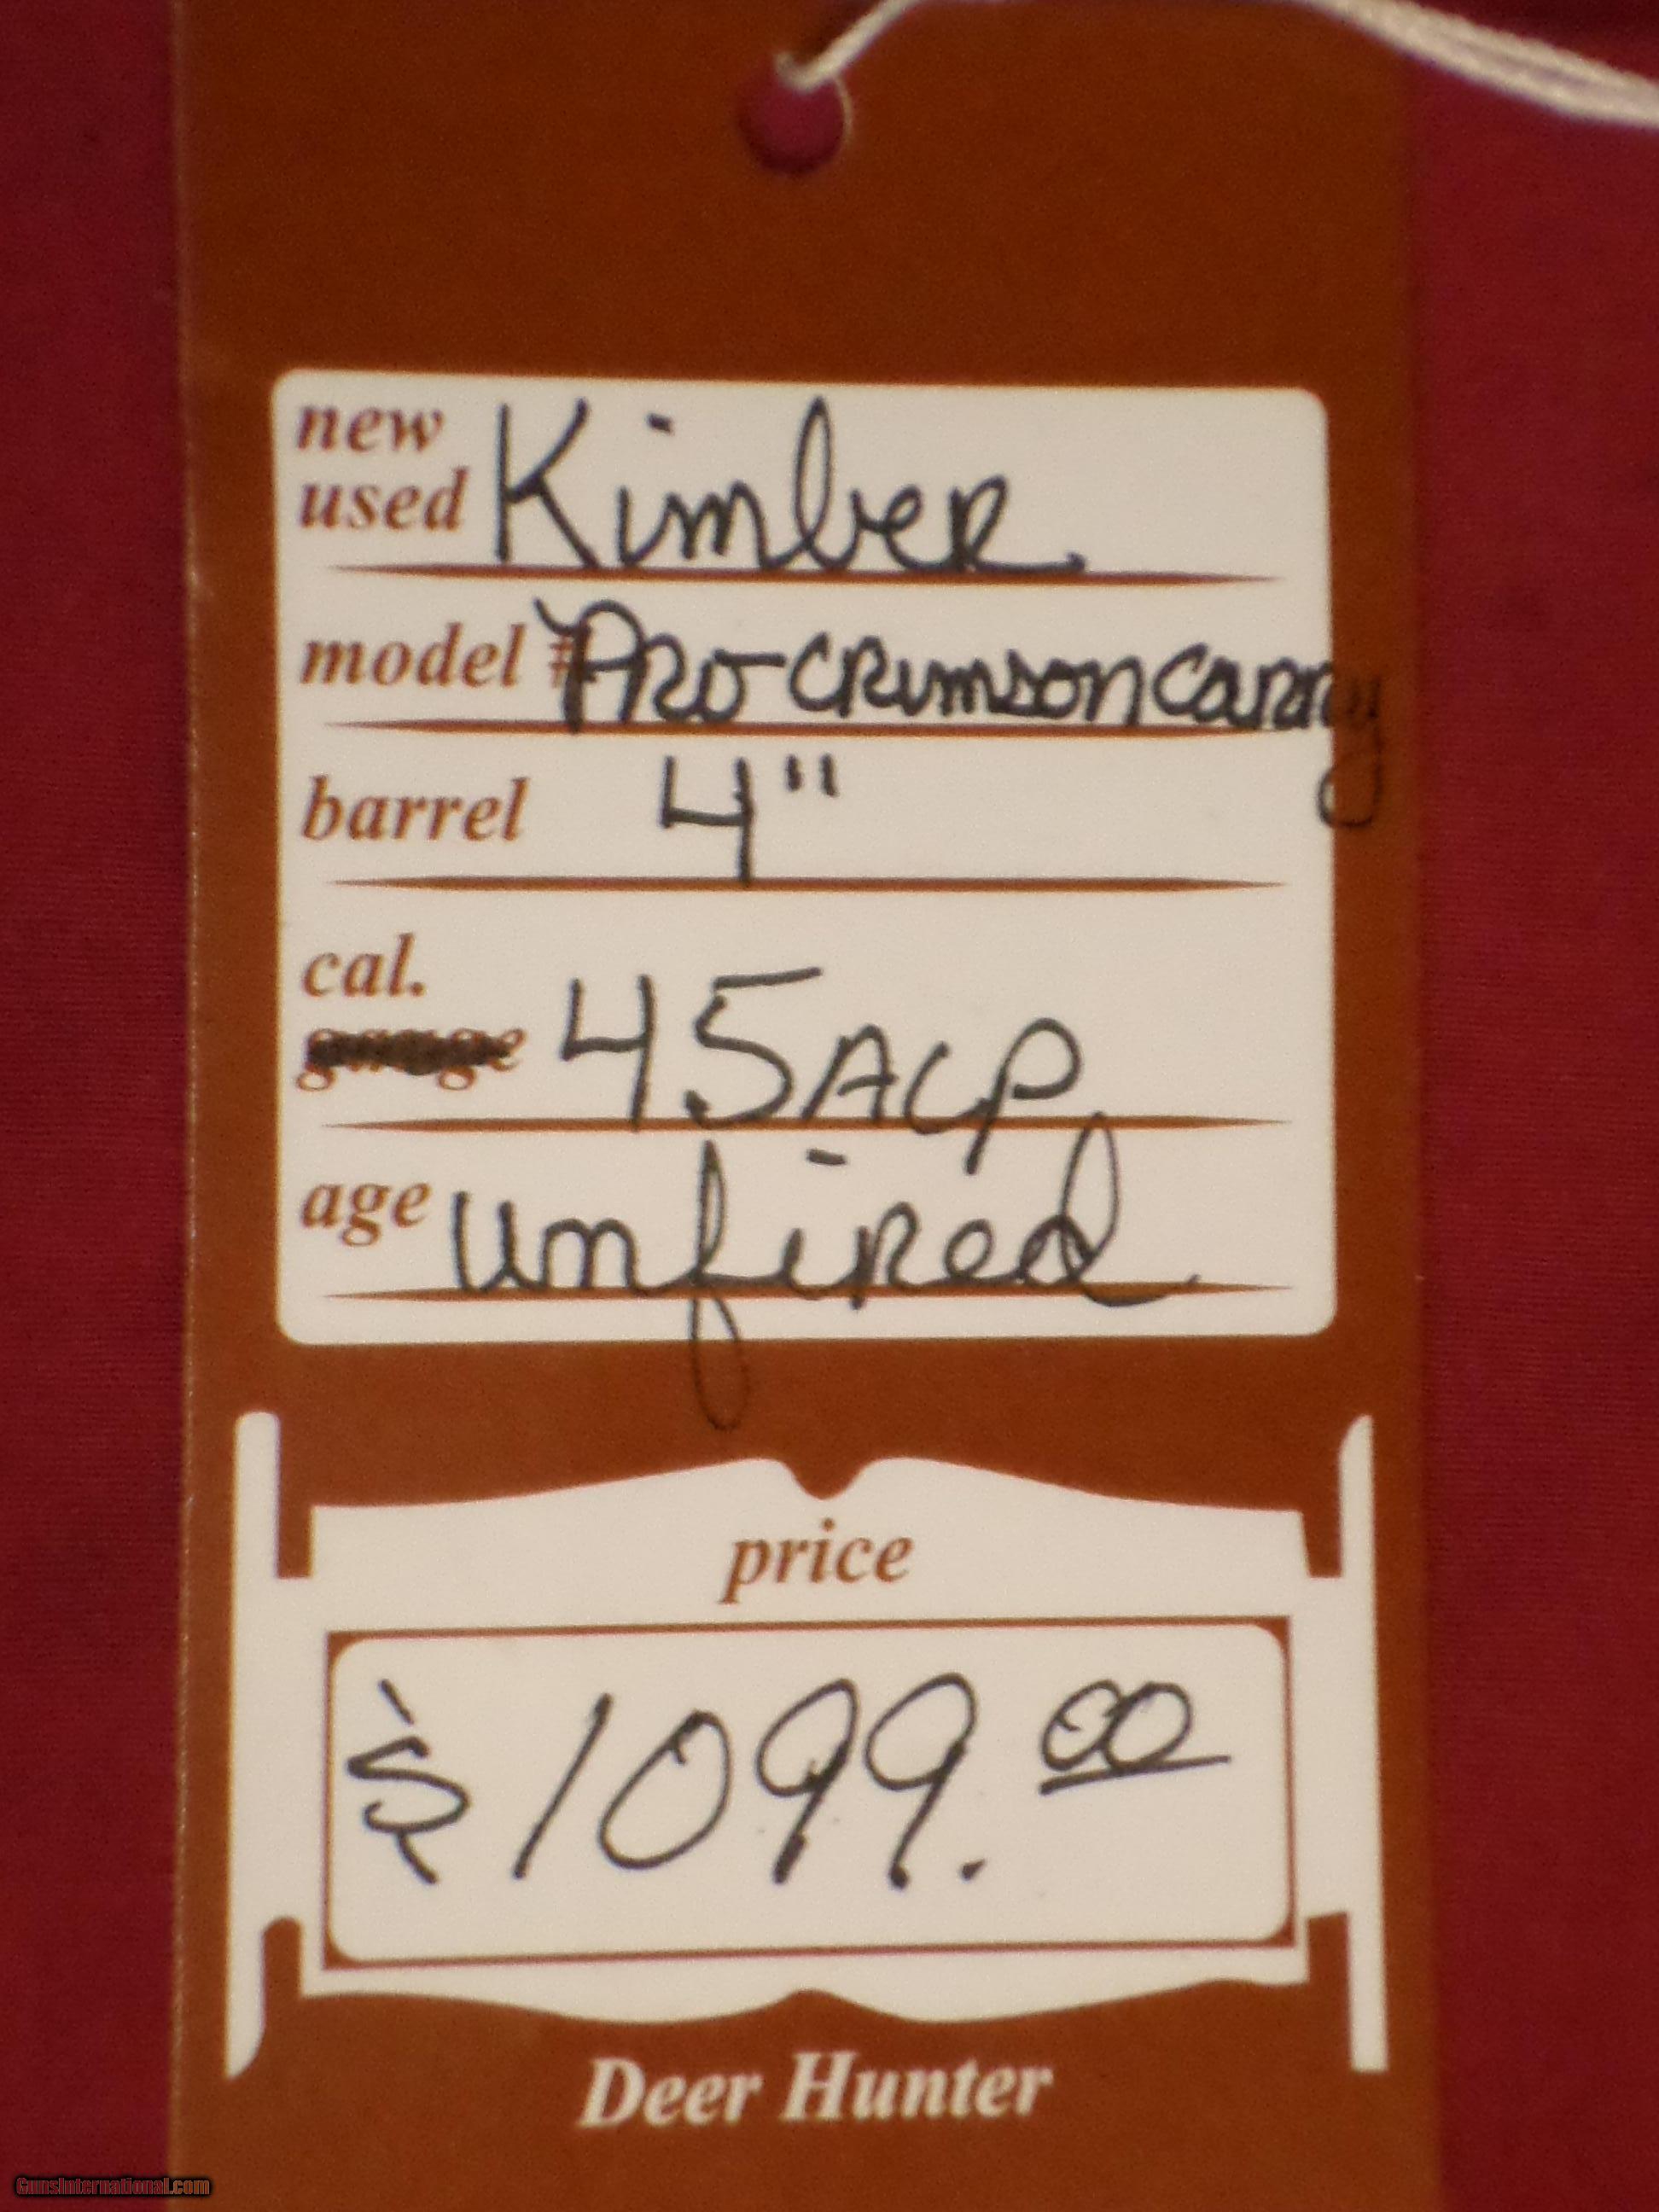 new
used Kimber
model # Pro-Crimson Carry
barrel 4"
cal.
gauge 45 ACP
age unfired
price
$1099.00
Deer Hunter
GunsInternational.com